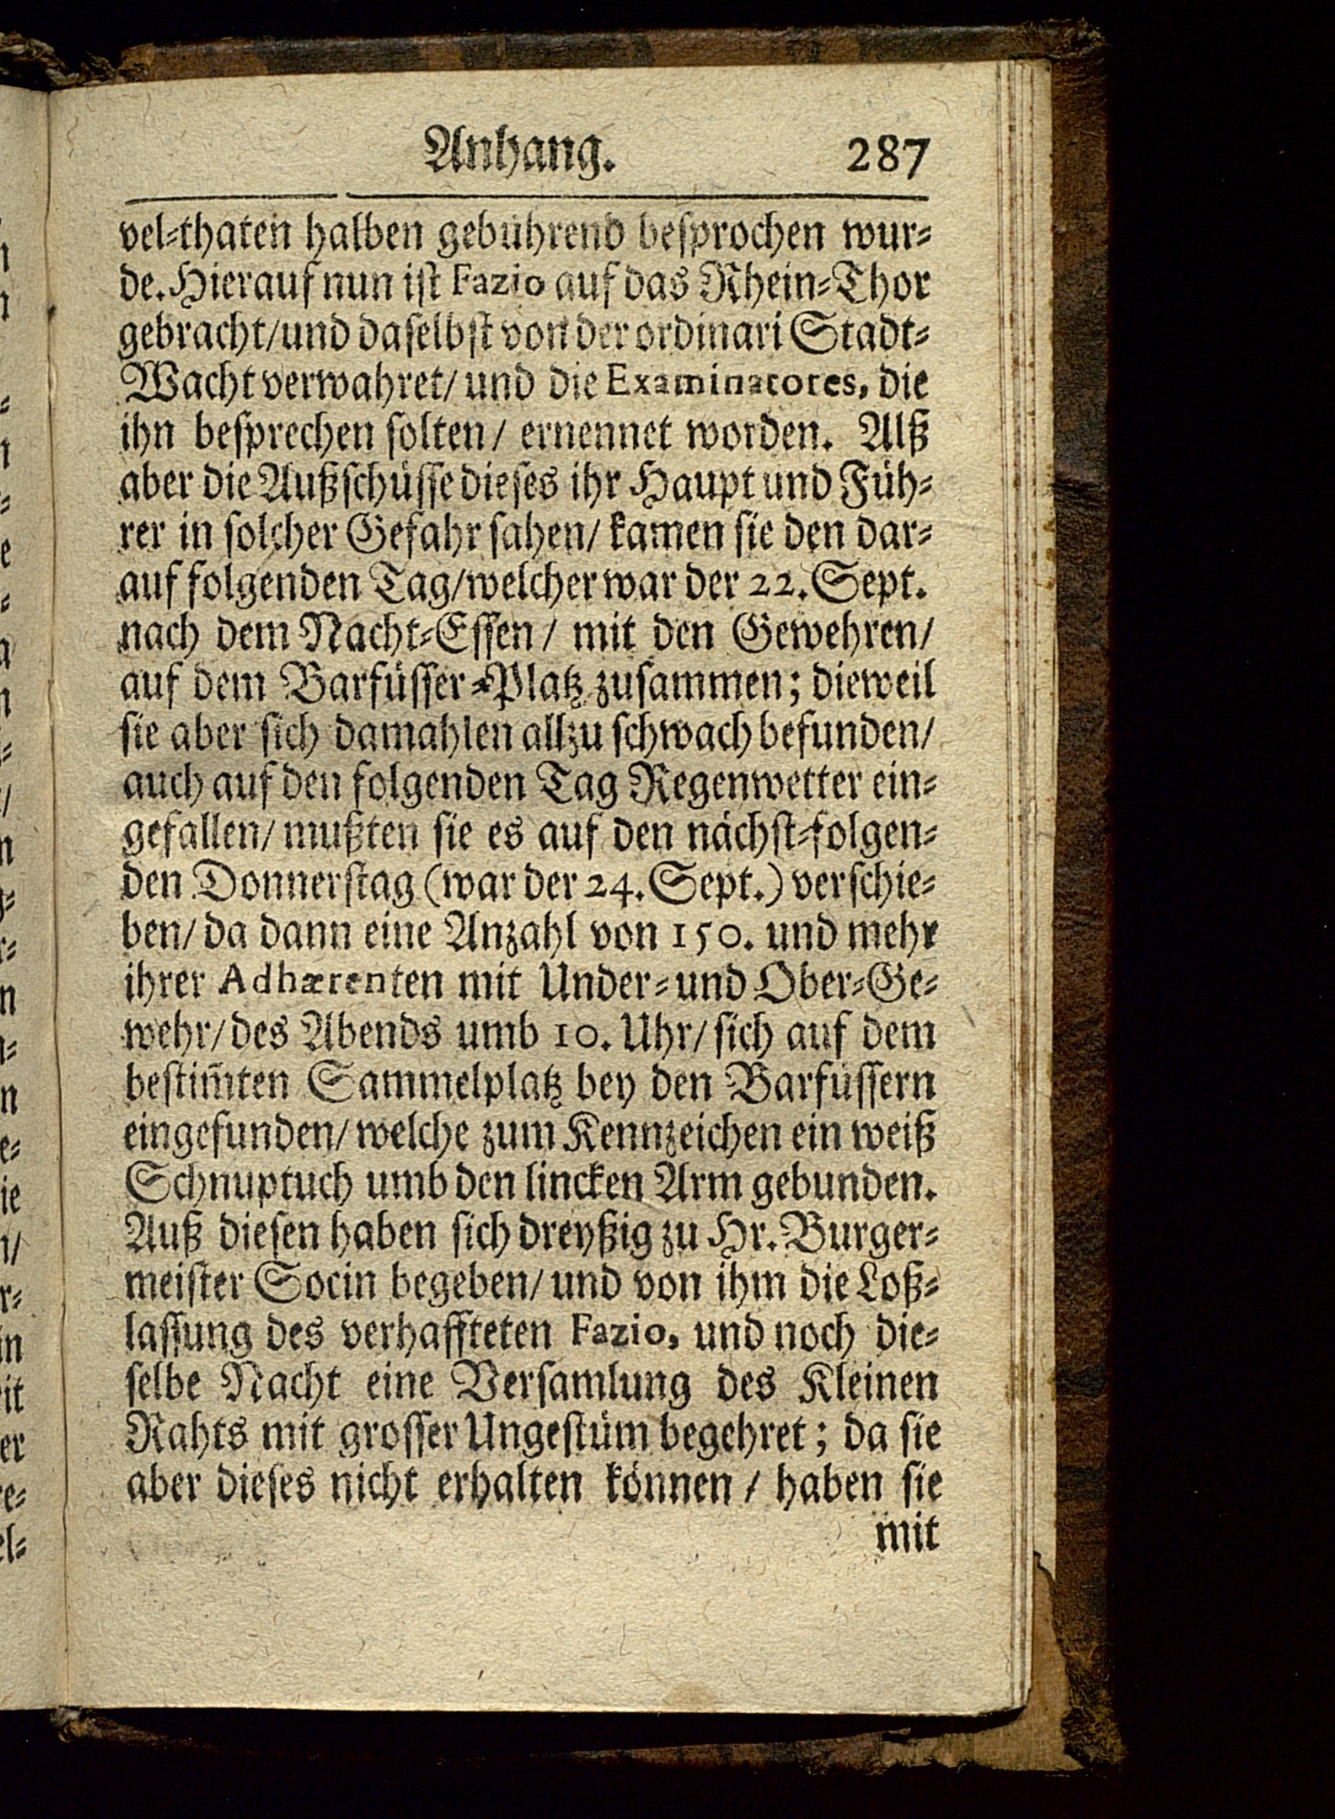 Anhang. 287
vel-thaten halben gebührend besprochen wur-
de. Hierauf nun ist Fazio auf das Rhein-Thor
gebracht/ und daselbst von der ordinari Stadt-
Wacht verwahret/ und die Examinatores, die
ihn besprechen solten/ ernennet worden. Alß
aber die Außschüsse dieses ihr Haupt und Füh-
rer in solcher Gefahr sahen/ kamen sie den dar-
auf folgenden Tag/ welcher war der 22. Sept.
nach dem Nacht-Essen/ mit den Gewehren/
auf dem Barfüsser-Platz zusammen; dieweil
sie aber sich damahlen allzu schwach befunden/
auch auf den folgenden Tag Regenwetter ein-
gefallen/ mußten sie es auf den nächst-folgen-
den Donnerstag (war der 24. Sept.) verschie-
ben/ da dann eine Anzahl von 150. und mehr
ihrer Adhærenten mit Under- und Ober-Ge-
wehr/ des Abends umb 10. Uhr/ sich auf dem
bestim̄ten Sammelplatz bey den Barfüssern
eingefunden/ welche zum Kennzeichen ein weiß
Schnuptuch umb den lincken Arm gebunden.
Auß diesen haben sich dreyßig zu Hr. Burger-
meister Socin begeben/ und von ihm die Loß-
lassung des verhaffteten Fazio, und noch die-
selbe Nacht eine Versamlung des Kleinen
Rahts mit grosser Ungestüm begehret; da sie
aber dieses nicht erhalten können/ haben sie
mit